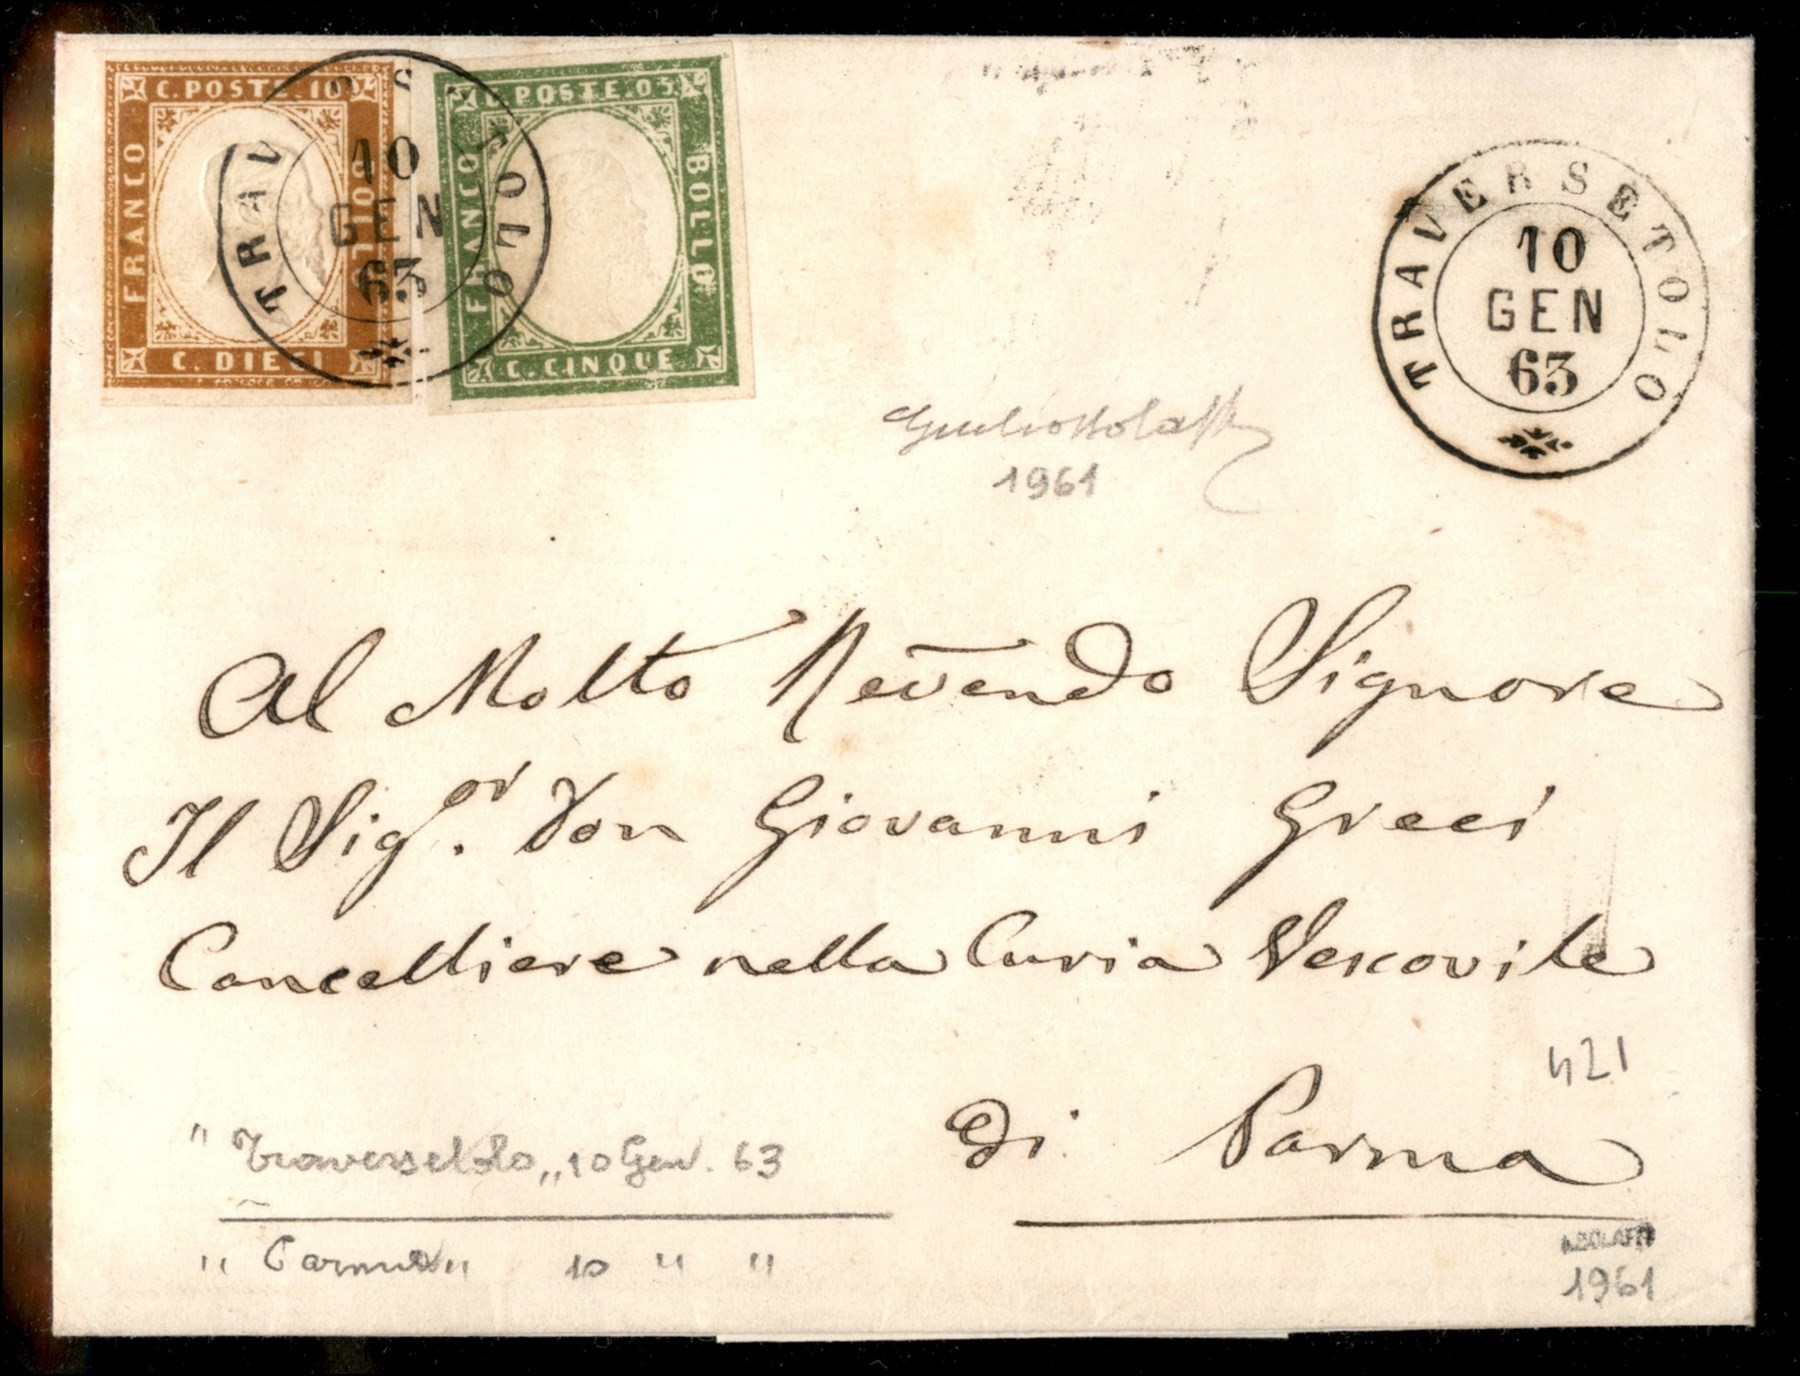 C. POSTE. 10
FRANCO
BOLLO
C. DIECI
C. POSTE. 05
FRANCO
BOLLO
C. CINQUE
TRAV S TOLO
10
GEN
63
TRAVERSETOLO
10
GEN
63
1961
Al Molto Revendo Signore
Il Sig.or Don Giovanni Greci
Cancelliere nella Curia Vescovile
di Parma
421
" Traversetolo „ 10 Gen. 63
" Parma " 10 " "
A.BOLAFFI
1961